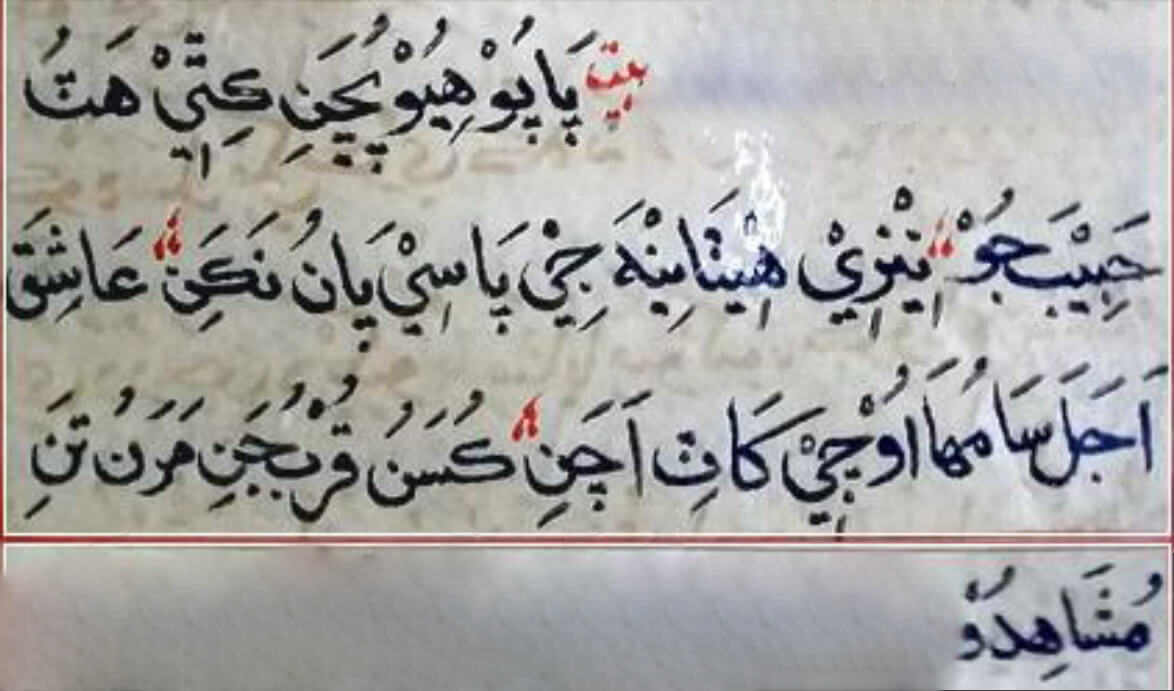 بيت پَاپُوْهِيُوْ پُڇَنِ ڪِٿِيْ هَٿُ
حَبِيْبَ جُوْ، نِيْزِيْ هِيٺَا نِيْنْهَ جِيْ پَاسِيْ پَانُ نَڪَنِ، عَاشِقَ
اَجَلَ سَامُهَا اُوْچِيْ ڳَاٽِ اَچَنِ، ڪُسَنُ قُرْبُ جَنِ مَرَنُ تَنِ
مُشَاهِدُوْ